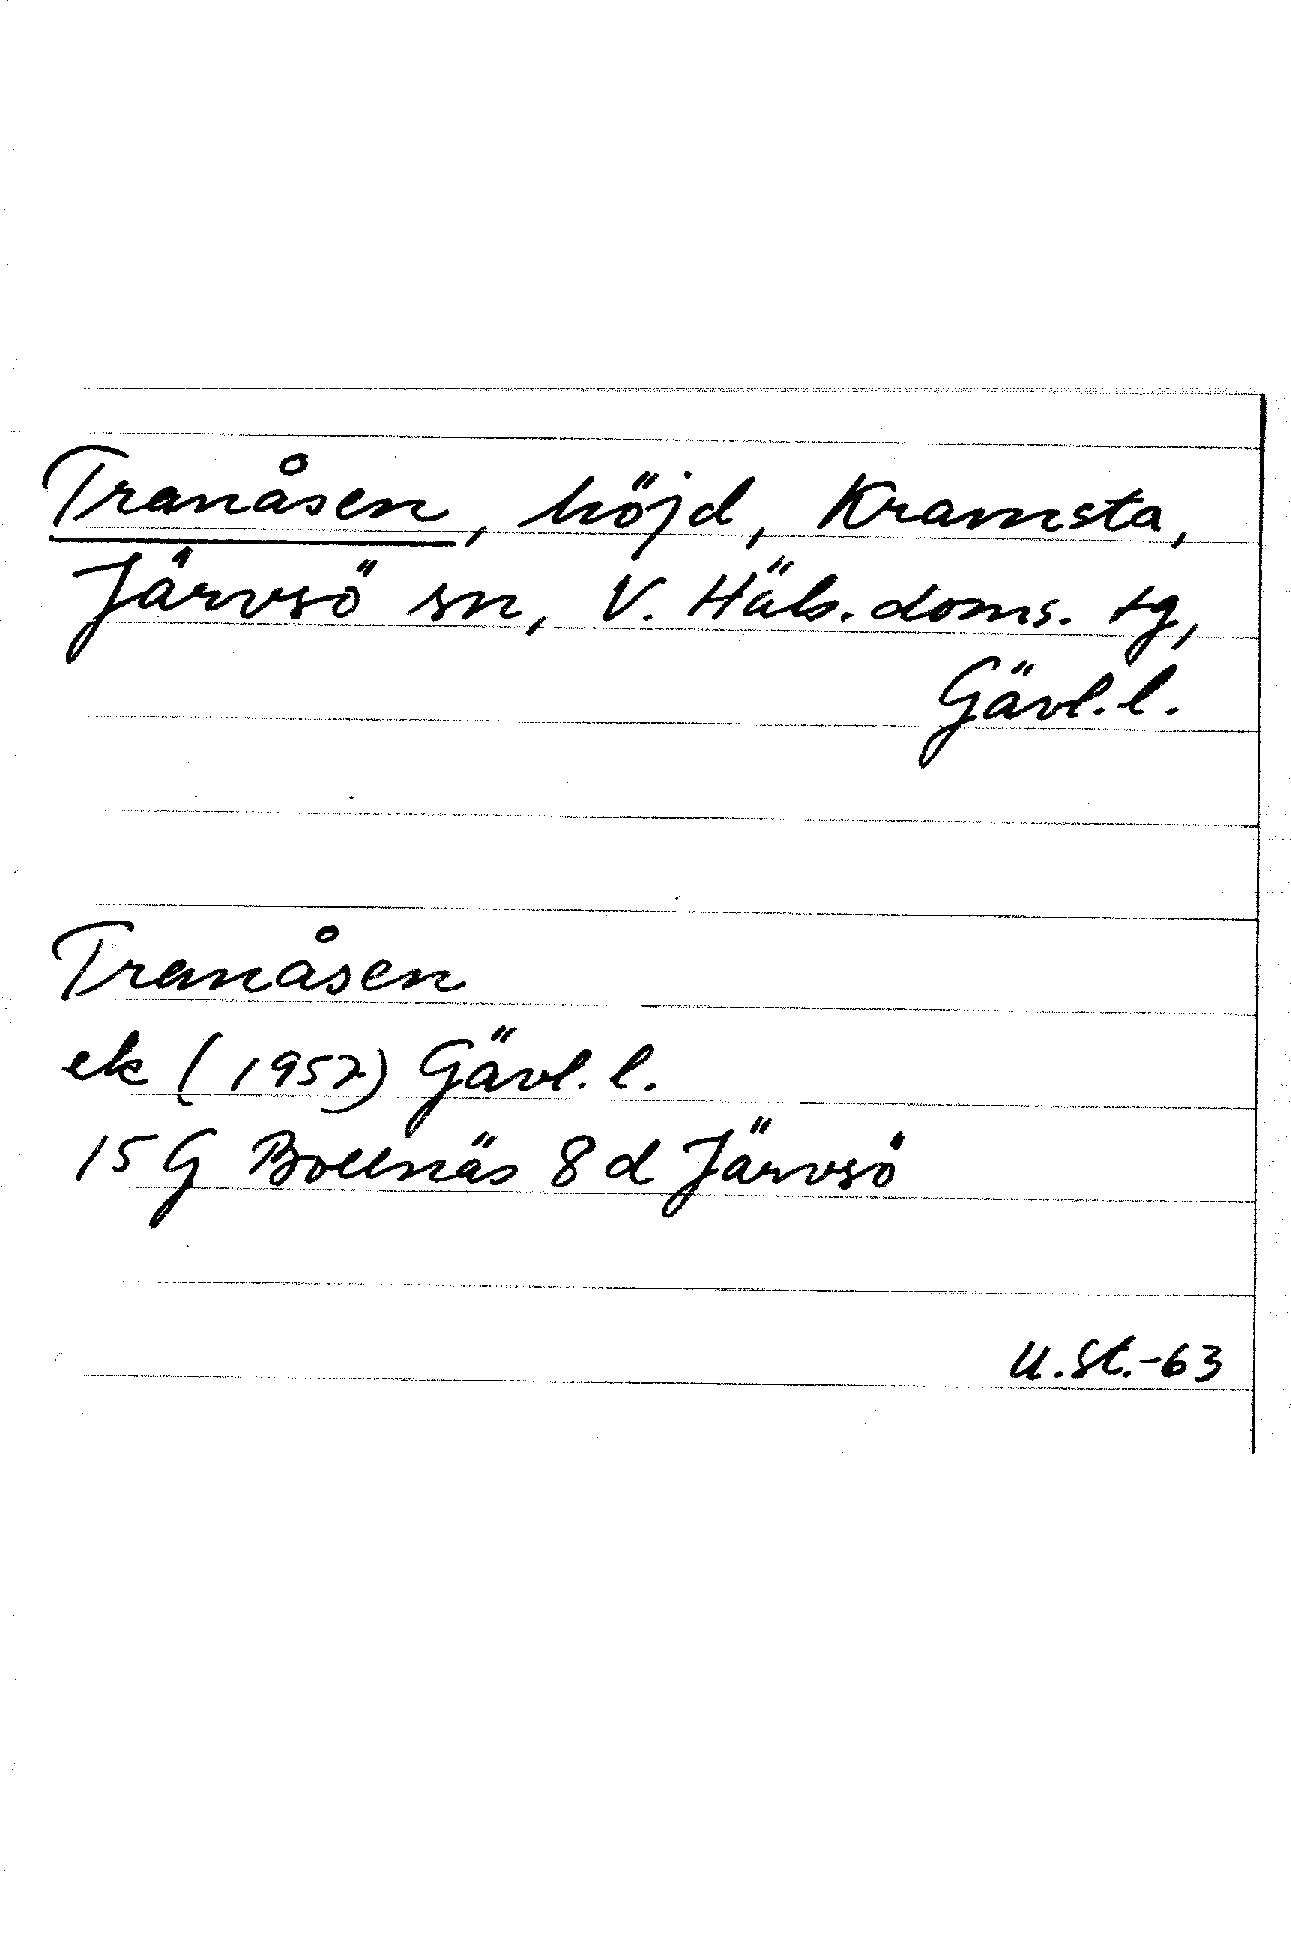 Tranåsen, höjd, Kramsta,
Järvsö sn, V. Häls. doms. tg,
Gävl. l.
Tranåsen
ek (1957) Gävl. l.
15 G Bollnäs 8 d Järvsö
U. St. -63